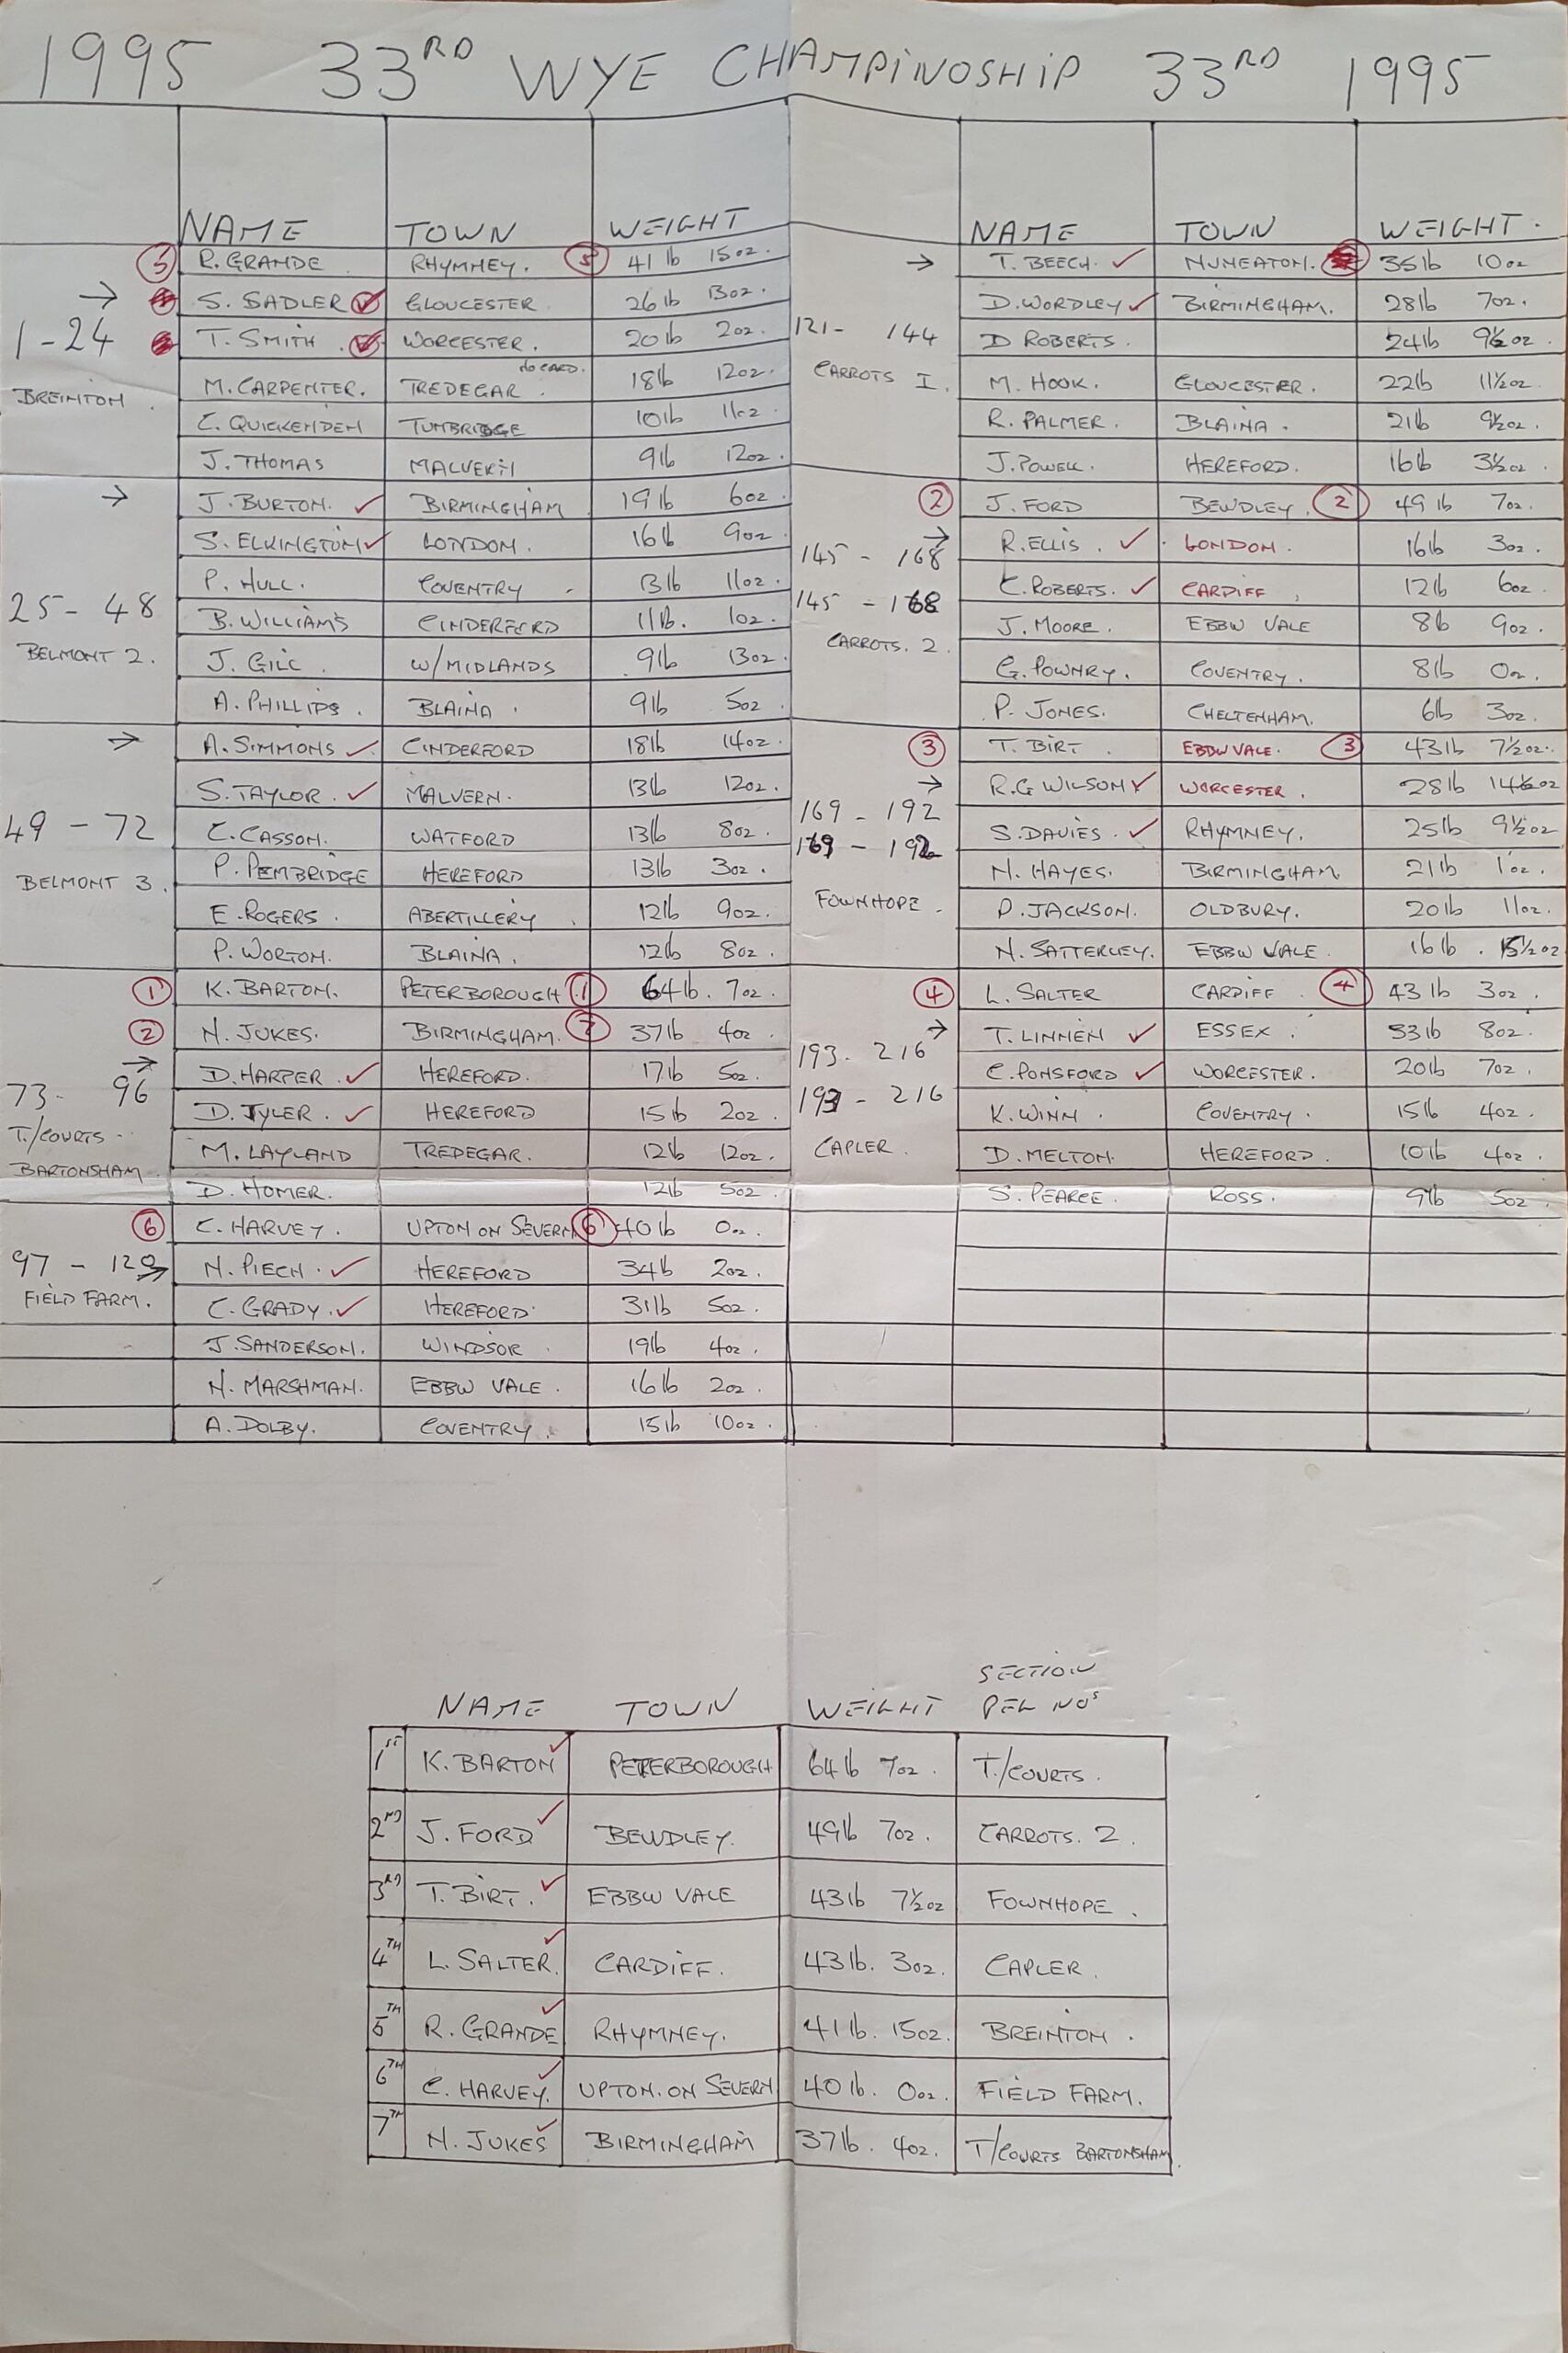 1995 33RD WYE CHAMPINOSHIP 33RD 1995
NAME TOWN WEIGHT
5 R. GRANDE RHYMNEY. 5 41 lb 15oz.
→ S. SADLER GLOUCESTER 26 lb 13oz.
1-24 T. SMITH. WORCESTER. 20lb 2oz.
NO CARD.
M. CARPENTER. TREDEGAR. 18lb 12oz.
BREINTON.
C. QUICKENDEN TUNBRIDGE 10lb 11oz
J. THOMAS MALVERN 9lb 12oz.
→ J. BURTON. ✓ BIRMINGHAM 19lb 6oz.
S. ELKINGTON ✓ LONDON. 16lb 9oz
P. HULL. COVENTRY 13lb 11oz.
25-48 B. WILLIAMS CINDERFORD 11lb. 1oz.
BELMONT 2. J. GILL. W/MIDLANDS 9lb 13oz.
A. PHILLIPS. BLAINA. 9lb 5oz.
→ A. SIMMONS ✓ CINDERFORD 18lb 14oz.
S. TAYLOR. ✓ MALVERN. 13lb 12oz.
49-72 C. CASSON. WATFORD 13lb 8oz.
BELMONT 3. P. PEMBRIDGE HEREFORD 13lb 3oz.
E. ROGERS. ABERTILLERY. 12lb 9oz.
P. WORTON. BLAINA. 12lb 8oz.
1 K. BARTON. PETERBOROUGH 1 64lb. 7oz.
2 N. JUKES. BIRMINGHAM. 7 37lb 4oz.
→ D. HARPER. ✓ HEREFORD. 17lb 5oz.
73-96 D. TYLER. ✓ HEREFORD 15lb 2oz.
T./COURTS
BARTONSHAM. M. LAYLAND TREDEGAR. 12lb 12oz.
D. HOMER. 12lb 5oz.
6 C. HARVEY. UPTON ON SEVERN 6 40lb 0oz.
97-120 → N. PIECH. ✓ HEREFORD 34lb 2oz.
FIELD FARM. C. GRADY. ✓ HEREFORD 31lb 5oz.
J. SANDERSON. WINDSOR. 19lb 4oz.
N. MARSHMAN. EBBW VALE. 16lb 2oz.
A. DOLBY. COVENTRY. 15lb 10oz.
NAME TOWN WEIGHT.
→ T. BEECH. ✓ NUNEATON. 35lb 10oz
D. WORDLEY ✓ BIRMINGHAM. 28lb 7oz.
121-144 D ROBERTS. 24lb 9½oz.
CARROTS I. M. HOOK. GLOUCESTER. 22lb 11½oz.
R. PALMER. BLAINA. 21lb 9½oz.
J. POWELL. HEREFORD. 16lb 3½oz.
2 J. FORD BEWDLEY. 2 49lb 7oz.
→ R. ELLIS. ✓ LONDON. 16lb 3oz.
145-168
C. ROBERTS. ✓ CARDIFF. 12lb 6oz.
145-168
J. MOORE. EBBW VALE 8lb 9oz.
CARROTS. 2.
G. POWNRY. COVENTRY. 8lb 0oz.
P. JONES. CHELTENHAM. 6lb 3oz.
3 T. BIRT. EBBW VALE. 3 43lb 7½oz.
→ R.G WILSON ✓ WORCESTER. 28lb 14½oz
169-192
S. DAVIES. ✓ RHYMNEY. 25lb 9½oz
169-192
N. HAYES. BIRMINGHAM 21lb 1oz.
FOWNHOPE. D. JACKSON. OLDBURY. 20lb 11oz.
N. SATTERLEY. EBBW VALE. 16lb. 15½oz
4 L. SALTER CARDIFF. 4 43lb 3oz.
→ T. LINNEN ✓ ESSEX. 33lb 8oz.
193-216
C. PONSFORD ✓ WORCESTER. 20lb 7oz.
193-216
K. WINN. COVENTRY. 15lb 4oz.
CAPLER. D. MELTON. HEREFORD. 10lb 4oz.
S. PEARCE. ROSS. 9lb 5oz.
NAME TOWN WEIGHT SECTION PEG NOS
1ST K. BARTON ✓ PETERBOROUGH 64lb 7oz. T./COURTS.
2ND J. FORD ✓ BEWDLEY. 49lb 7oz. CARROTS. 2.
3RD T. BIRT. ✓ EBBW VALE 43lb 7½oz FOWNHOPE.
4TH L. SALTER. ✓ CARDIFF. 43lb. 3oz. CAPLER.
5TH R. GRANDE ✓ RHYMNEY. 41lb. 15oz. BREINTON.
6TH C. HARVEY. ✓ UPTON. ON SEVERN 40lb. 0oz. FIELD FARM.
7TH N. JUKES ✓ BIRMINGHAM 37lb. 4oz. T/COURTS BARTONSHAM.